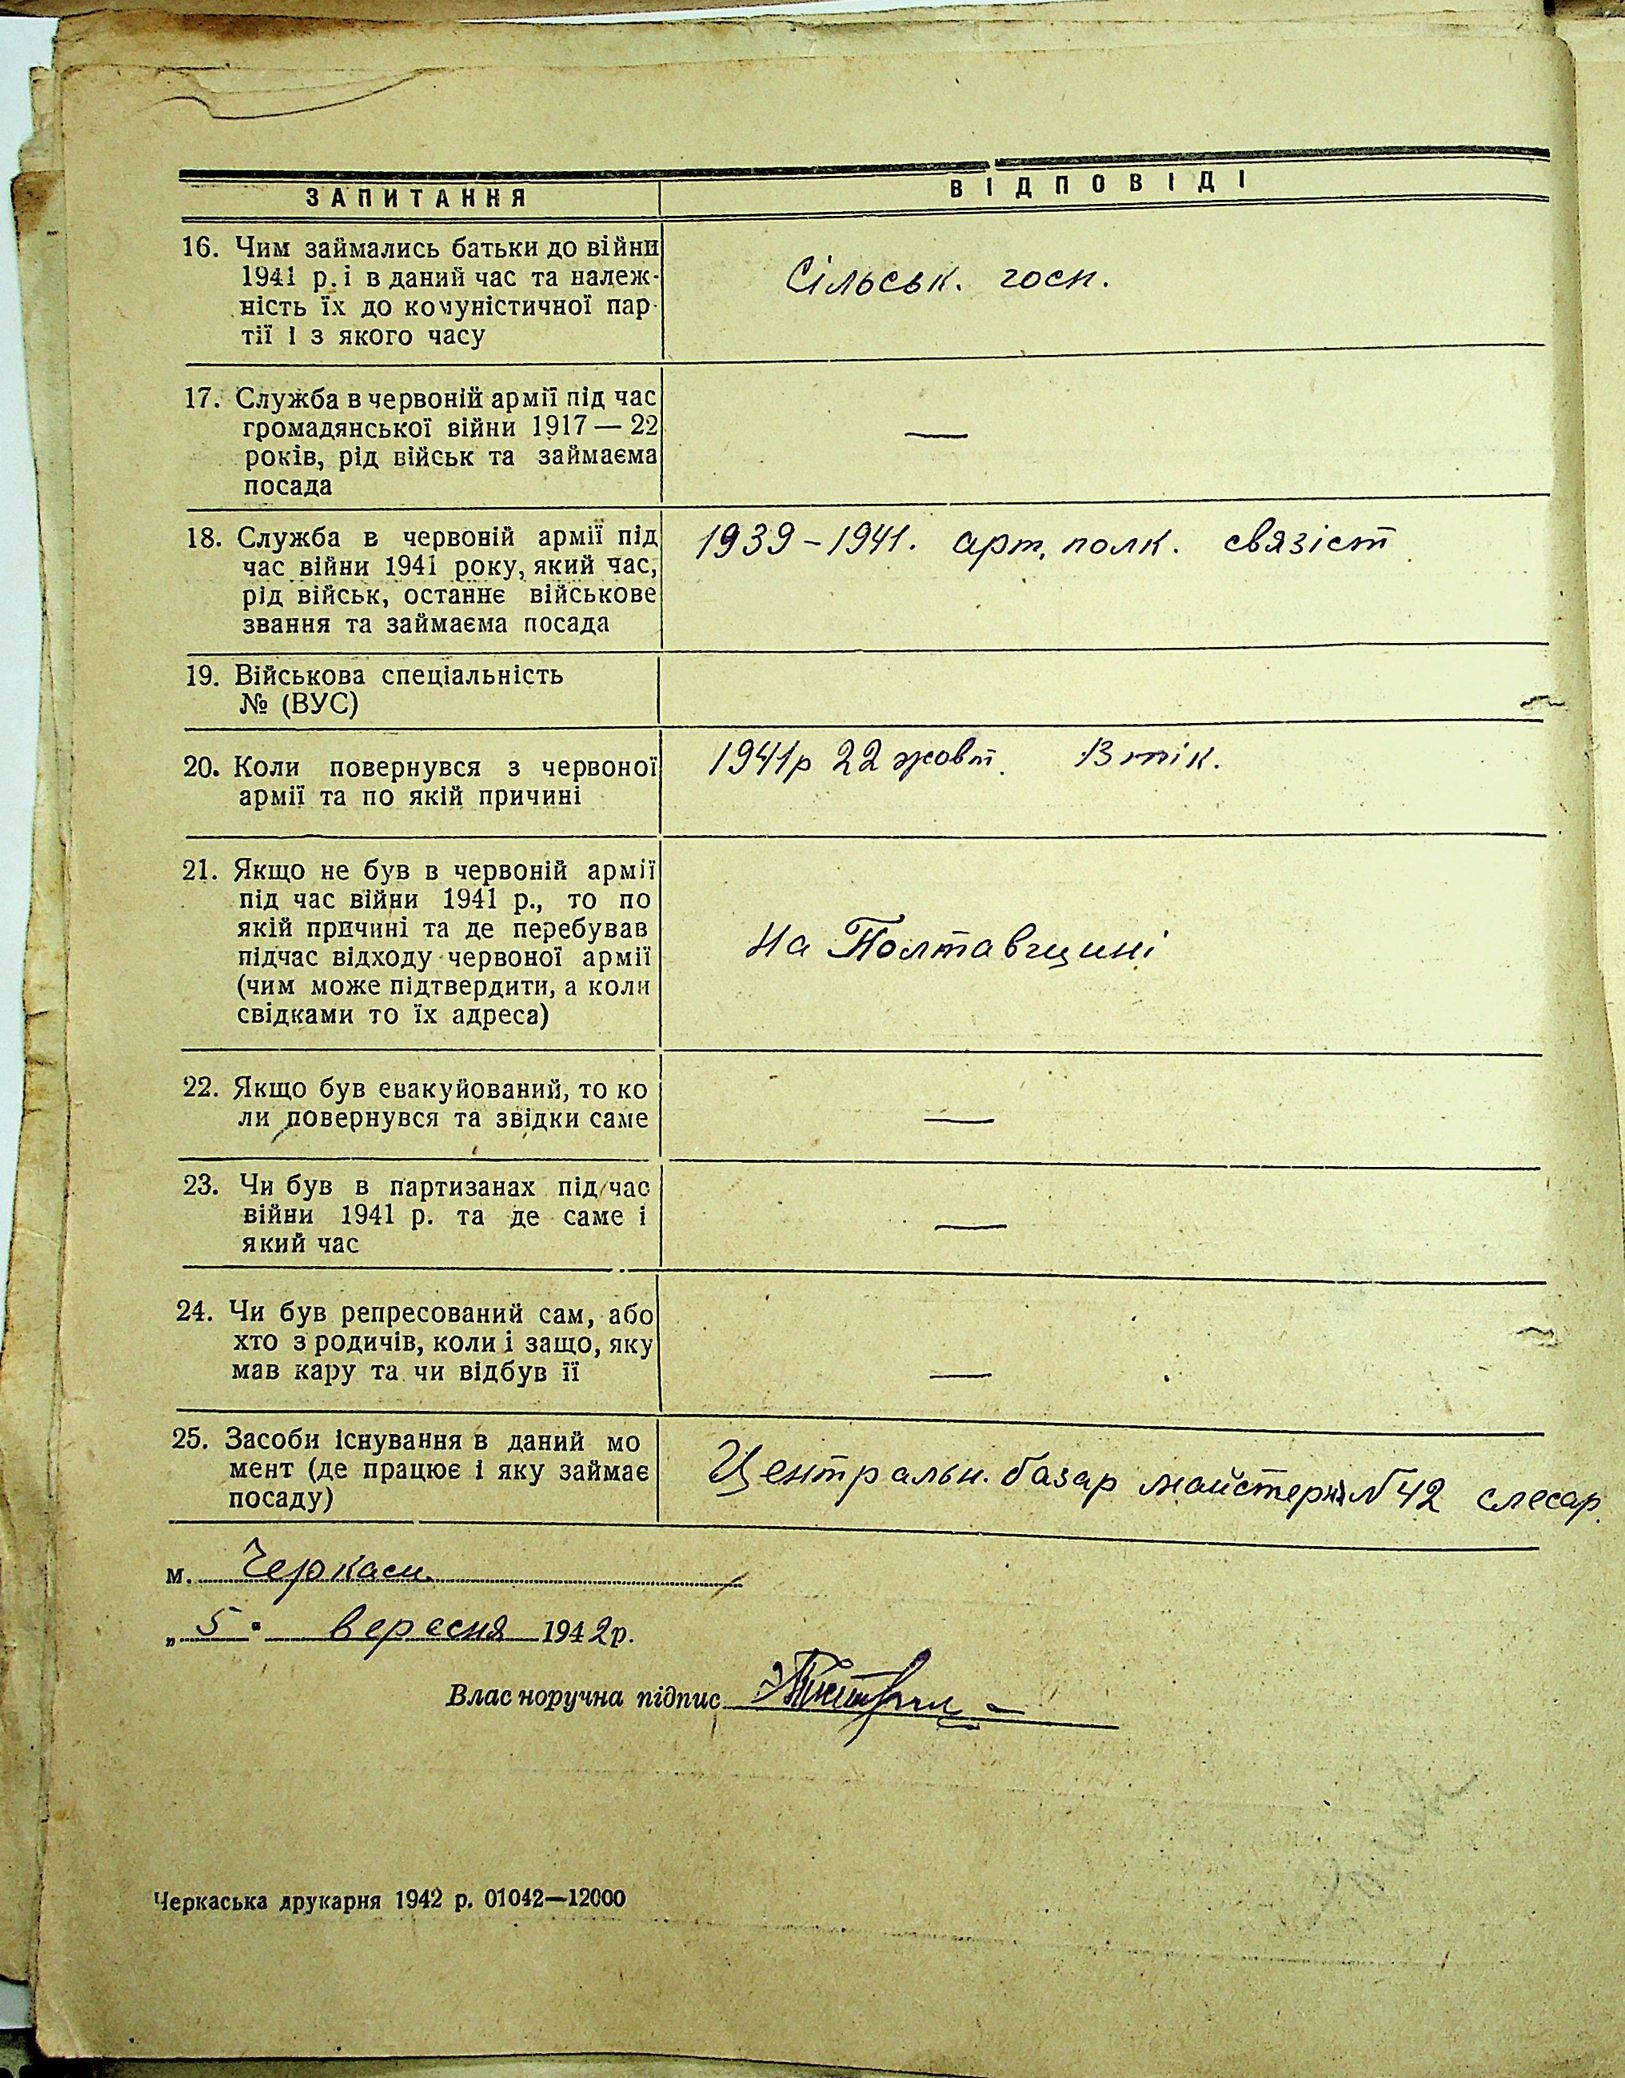 ЗАПИТАННЯ ВІДПОВІДІ
16. Чим займались батьки до війни
1941 р. і в даний час та належ-
ність їх до комуністичної пар-
тії і з якого часу
Сільськ. госп.
17. Служба в червоній армії під час
громадянської війни 1917 — 22
років, рід військ та займаєма
посада
—
18. Служба в червоній армії під
час війни 1941 року, який час,
рід військ, останнє військове
звання та займаєма посада
1939-1941. арт. полк. связіст
19. Військова спеціальність
№ (ВУС)
20. Коли повернувся з червоної
армії та по якій причині
1941р 22 жовт. Втік.
21. Якщо не був в червоній армії
під час війни 1941 р., то по
якій причині та де перебував
підчас відходу червоної армії
(чим може підтвердити, а коли
свідками то їх адреса)
На Полтавщині
22. Якщо був евакуйований, то ко
ли повернувся та звідки саме
—
23. Чи був в партизанах під час
війни 1941 р. та де саме і
який час
—
24. Чи був репресований сам, або
хто з родичів, коли і защо, яку
мав кару та чи відбув її
—
25. Засоби існування в даний мо
мент (де працює і яку займає
посаду)
Центральн. базар майстерня №42 слесар.
м. Черкаси
„5" вересня 1942р.
Власноручна підпис
Черкаська друкарня 1942 р. 01042—12000